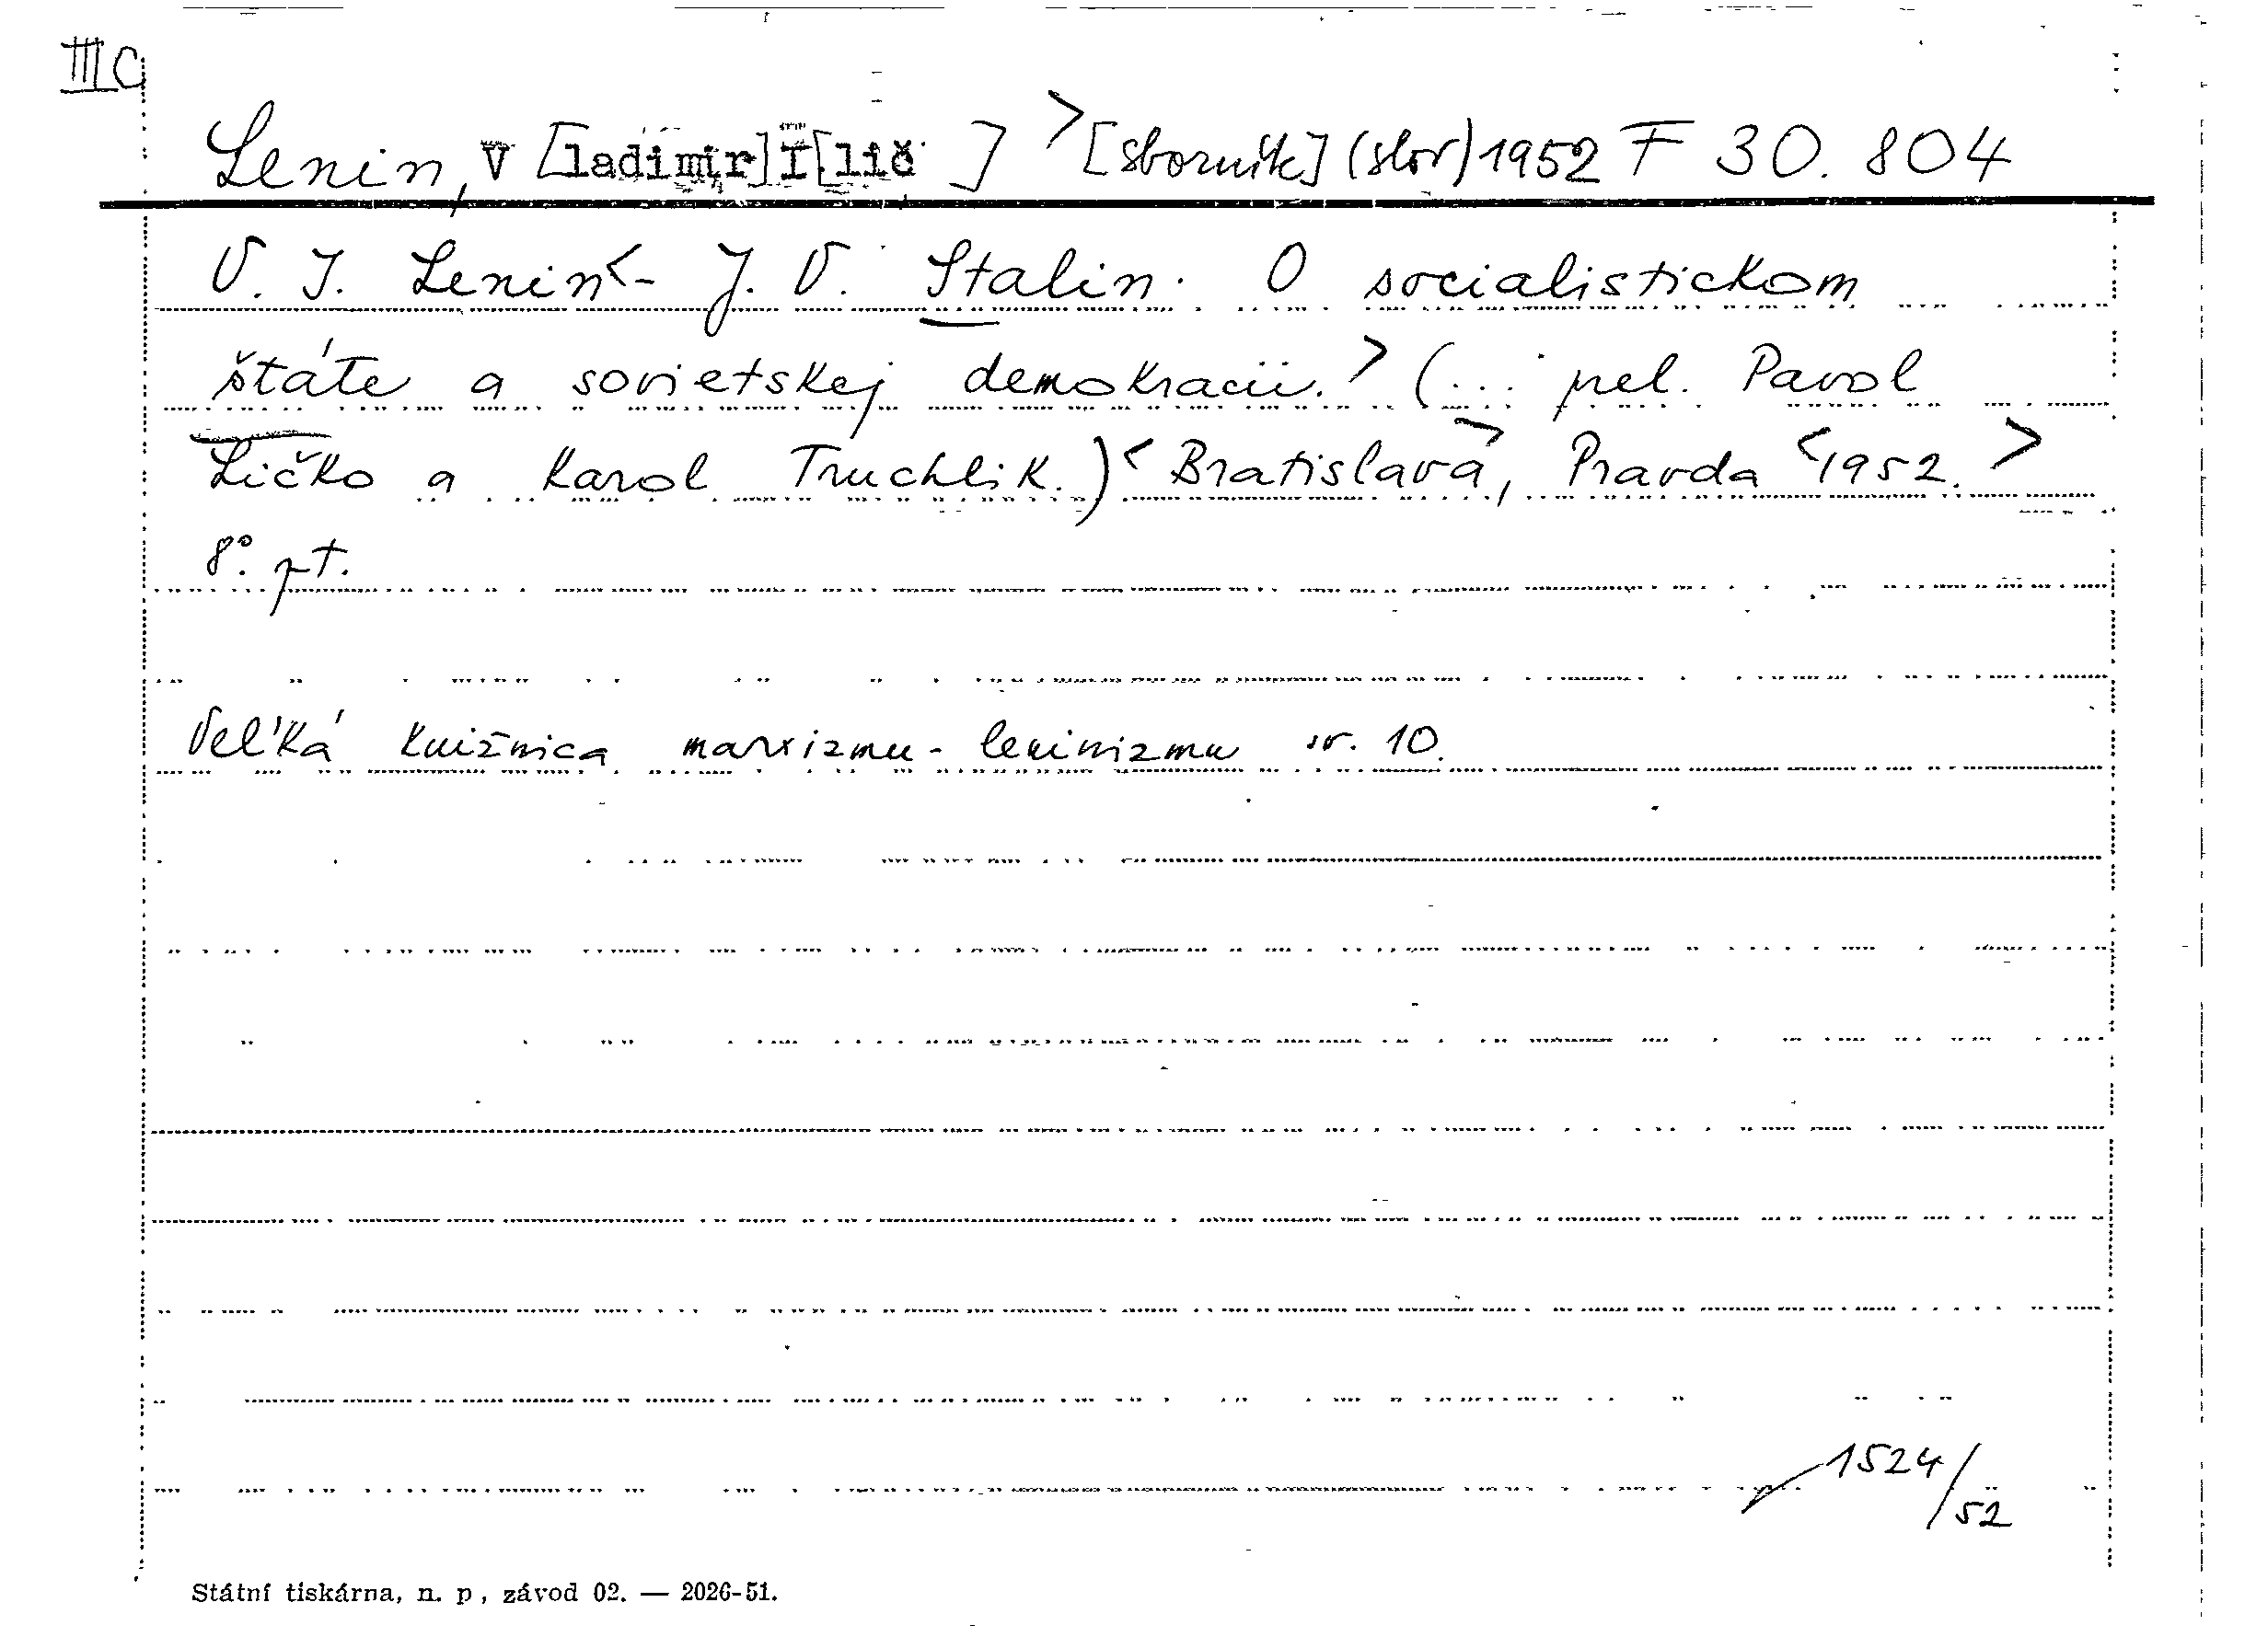 III C
Lenin, V[ladimir] I[lič] > [sborník] (slov) 1952 F 30.804
V. I. Lenin <- J. V. Stalin. O socialistickom
štáte a sovietskej demokracii. > (... prel. Pavol
Ličko a Karol Truchlik.) < Bratislava, Pravda <1952. >
8°. pt.
Veľká knižnica marxizmu-leninizmu sv. 10.
1524/52
Státní tiskárna, n. p., závod 02. — 2026-51.